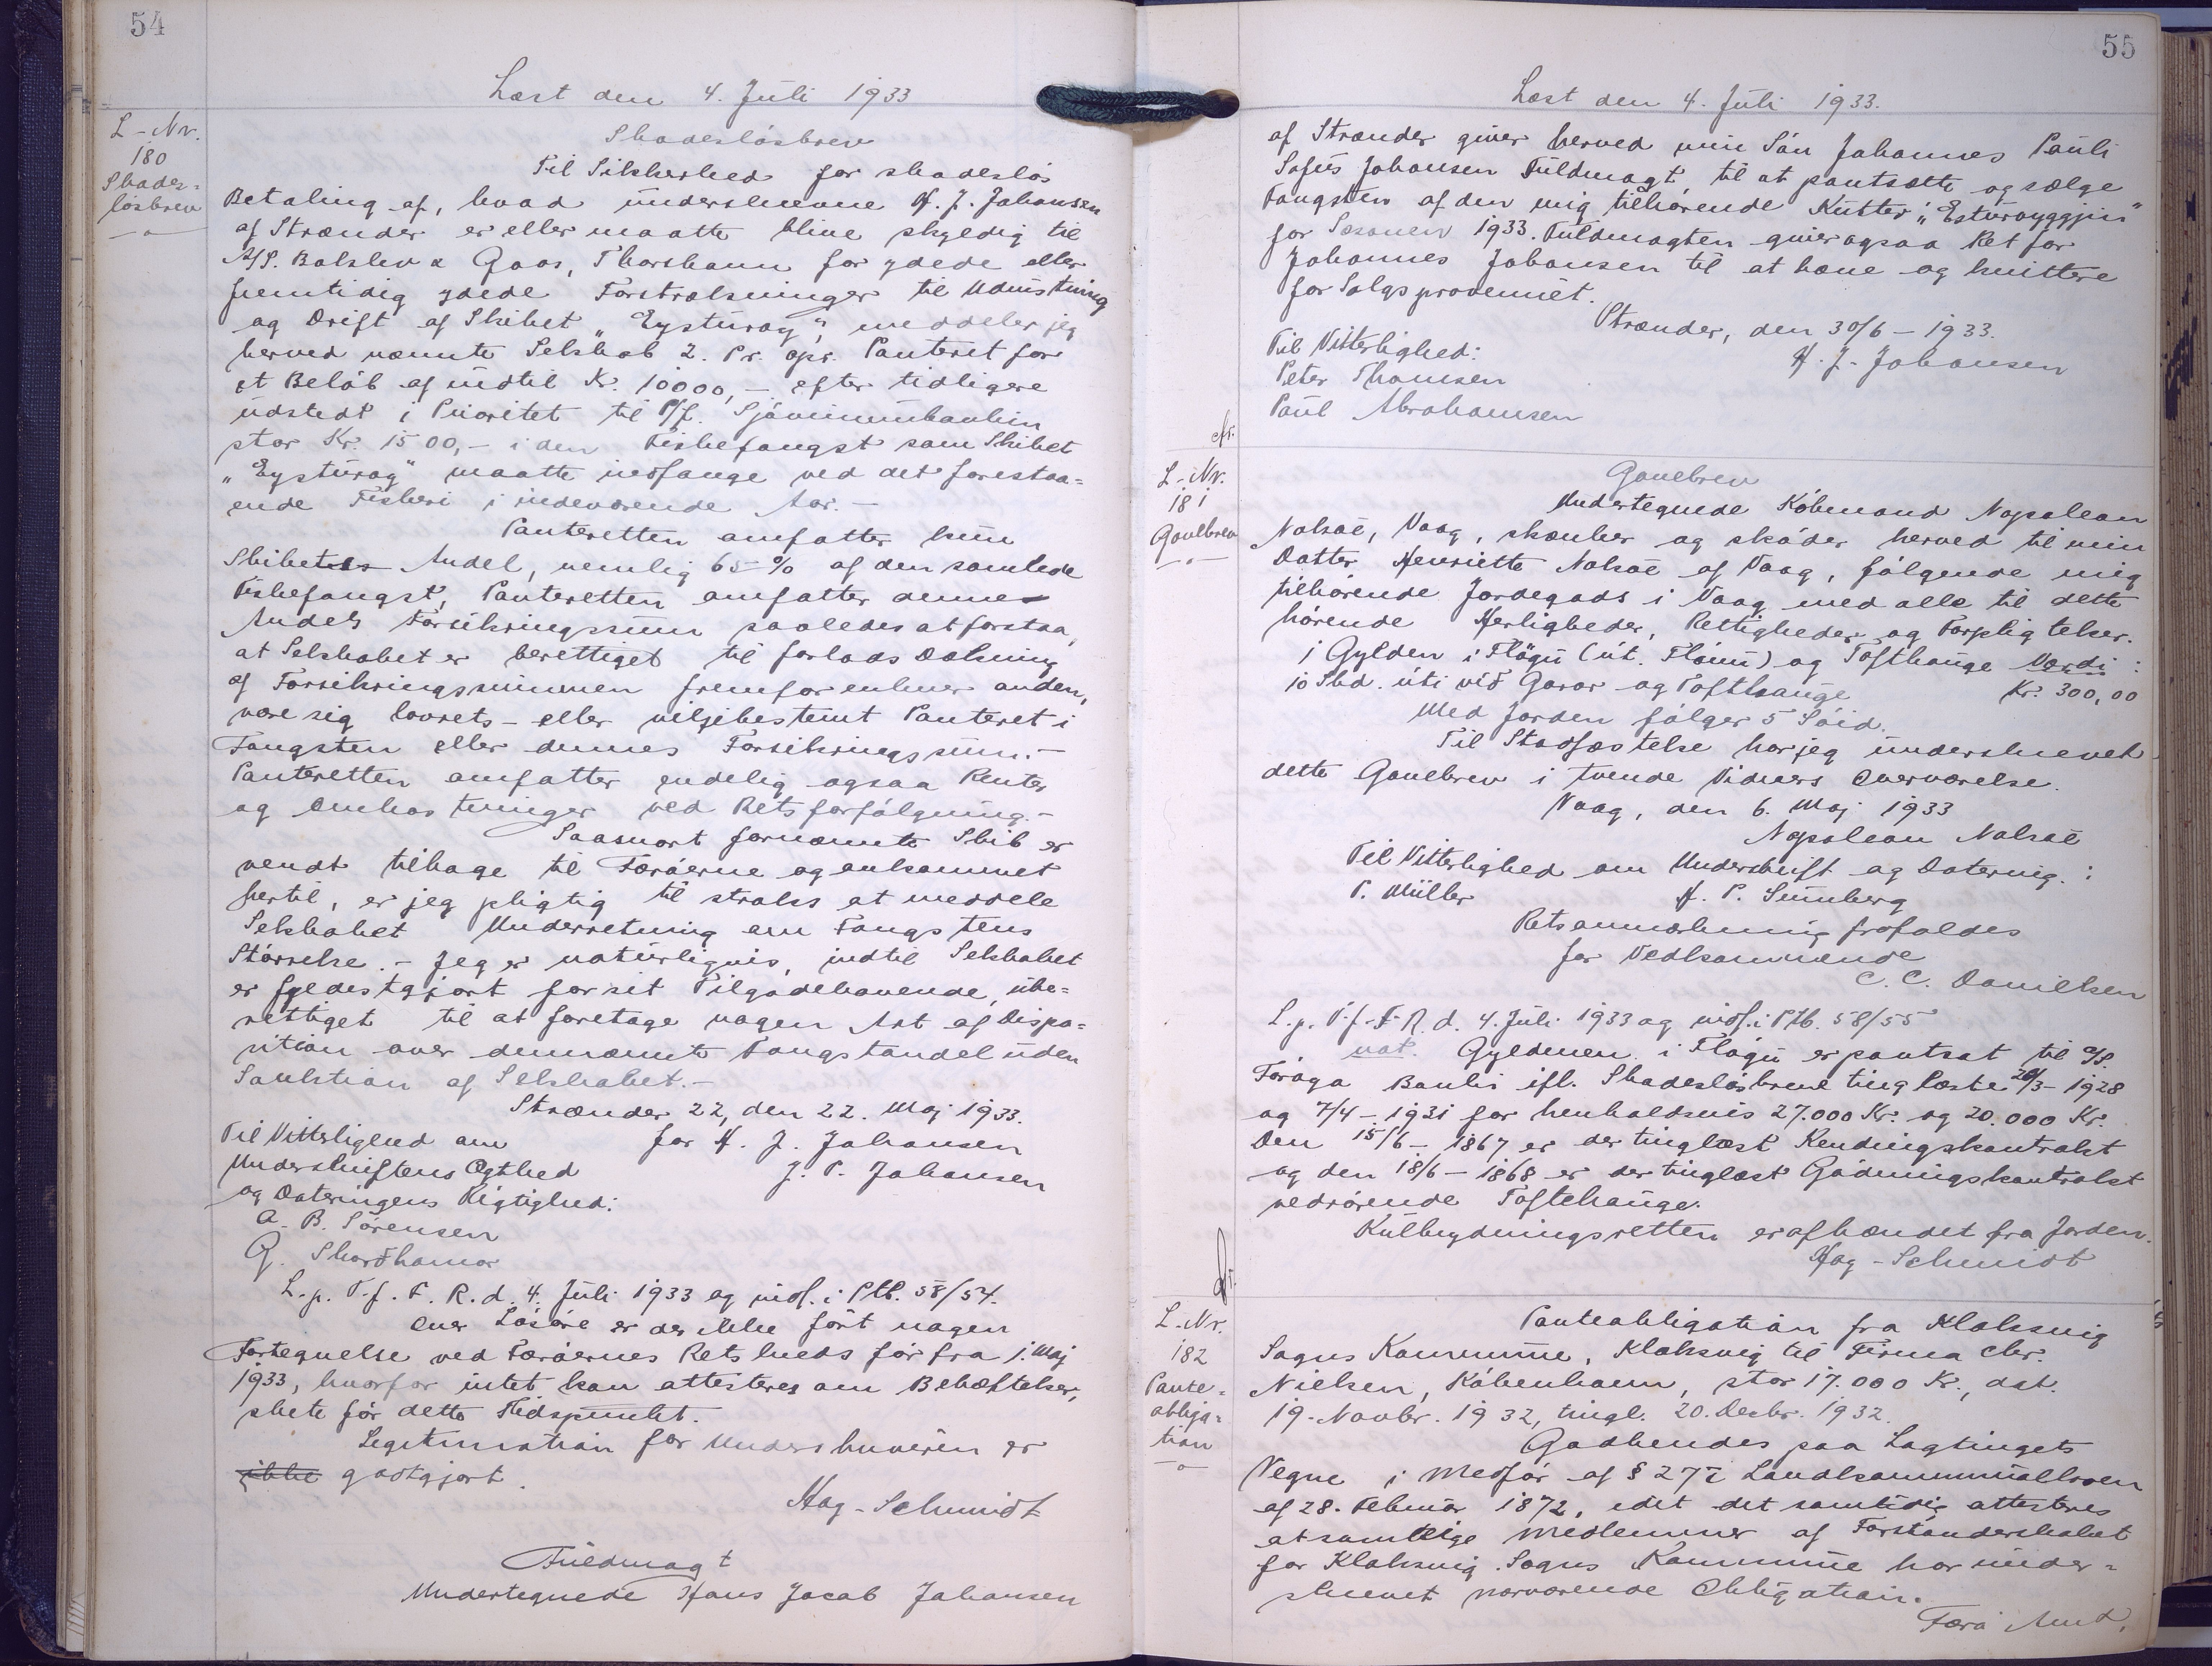 54
Læst den 4. Juli 1933
L-Nr.
180
Skades=
lösbrev
Skadeslösbrev
Til Sikkerhed for skadeslös
Betaling af, hvad underskrevne H. J. Johansen
af Strænder er eller maatte blive skyldig til
A/S. Balslev & Gaas, Thorshavn for ydede eller
fremtidig ydede Forstrækninger til Udrustning
og Drift af Skibet „Eysturoy", meddeler jeg
herved nævnte Selskab 2. Pr. opr. Panteret for
et Belöb af indtil Kr. 10000,- efter tidligere
udstedt 1 Prioritet til P/f. Sjóvinnubankin
stor Kr. 1500,- i den Fiskefangst som Skibet
„Eysturoy" maatte indfange ved det forestaa=
ende Fiskeri i indeværende Aar.-
Panteretten omfatter kun
Skibets Andel, nemlig 65 % af den samlede
Fiskefangst, Panteretten omfatter denne
Andels Forsikringssum saaledes at forstaa,
at Selskabet er berettiget til forlods Dækning
af Forsikringssummen fremfor enhver anden,
være sig lovrets- eller viljebestemt Panteret i
Fangsten eller dennes Forsikringssum.-
Panteretten omfatter endelig ogsaa Renter
og Omkostninger ved Retsforfölgning.-
Saasnart fornævnte Skib er
vendt tilbage til Færöerne og ankommet
hertil, er jeg pligtig til straks at meddele
Selskabet Underretning om Fangstens
Störrelse.- Jeg er naturligvis, indtil Selskabet
er fyldestgjort for sit Tilgodehavende, ube=
rettiget til at foretage nogen Art af Dispo=
sition over dennævnte Fangstandel uden
Sanktion af Selskabet.-
Strænder 22, den 22. Maj 1933.
Til Vitterlighed om for H. J. Johansen
Underskriftens Ægthed J. P. Johansen
og Dateringens Rigtighed:
A. B. Sörensen
G. Skarðhamar
L. p. T. f. F. R. d. 4. Juli 1933 og indf. i Ptb. 58/54.
Over Lösöre er der ikke fört nogen
Fortegnelse ved Færöernes Retskreds för fra 1. Maj
1933, hvorfor intet kan attesteres om Behæftelser,
skete för dette Tidspunkt.
Legitimation for Underskriveren er
ikke godtgjort.
Hag-Schmidt
Fuldmagt
Undertegnede Hans Jacob Johansen
55
Læst den 4. Juli 1933.
af Strænder giver herved min Sön Johannes Pauli
Sofus Johansen Fuldmagt, til at pantsætte og sælge
Fangsten af den mig tilhörende Kutter „Esturoyggjin"
for Sæsonen 1933. Fuldmagten giver ogsaa Ret for
Johannes Johansen til at hæve og kvittere
for Salgsprovenuet.
Strænder, den 30/6 - 1933.
Til Vitterlighed: H. J. Johansen
Peter Thomsen
Paul Abrahamsen
L-Nr.
181
Gavebrev
Gavebrev
Undertegnede Köbmand Napolean
Nolsøe, Vaag, skænker og sköder herved til min
Datter Henriette Nolsøe af Vaag, fölgende mig
tilhörende Jordegods i Vaag med alle til dette
hörende Herligheder, Rettigheder og Forpligtelser.
1 Gylden i Flögu (út. Flónu) og Tofthauge Værdi:
10 Skd. úti við Garar og Tofthauge Kr. 300,00
Med Jorden fölger 5 Söid.
Til Stadfæstelse har jeg underskrevet
dette Gavebrev i tvende Vidners Overværelse.
Vaag, den 6. Maj 1933
Napolean Nolsøe
Til Vitterlighed om Underskrift og Datering:
P. Müller H. P. Sunnberg
Retsanmærkning frafaldes
for Vedkommende
C. C. Danielsen
L. p. T. f. F. R. d. 4. Juli 1933 og indf. i Ptb. 58/55
not. Gyldenen i Flögu er pantsat til A/S.
Föroya Banki ifl. Skadeslösbreve tinglæste 20/3-1928
og 7/4-1931 for henholdsvis 27.000 Kr. og 20.000 Kr.
Den 15/6-1867 er der tinglæst Kendingskontrakt
og den 18/6-1868 er der tinglæst Gødningskontrakt
vedrörende Toftehauge.
Kulbrydningsretten er afhændet fra Jorden.
Hag-Schmidt
L.Nr.
182
Pante=
obliga=
tion
Panteobligation fra Klaksvig
Sogns Kommune, Klaksvig til Firma Chr.
Nielsen, Köbenhavn, stor 17.000 Kr., dat.
19. Novbr. 1932, tingl. 20. Decbr. 1932.
Godkendes paa Lagtingets
Vegne i Medför af § 27 i Landkommunalloven
af 28. Februar 1872, idet det samtidig attesteres
at samtlige Medlemmer af Forstanderskabet
for Klaksvig Sogns Kommune har under=
skrevet nærværende Obligation.
Færö Amt,